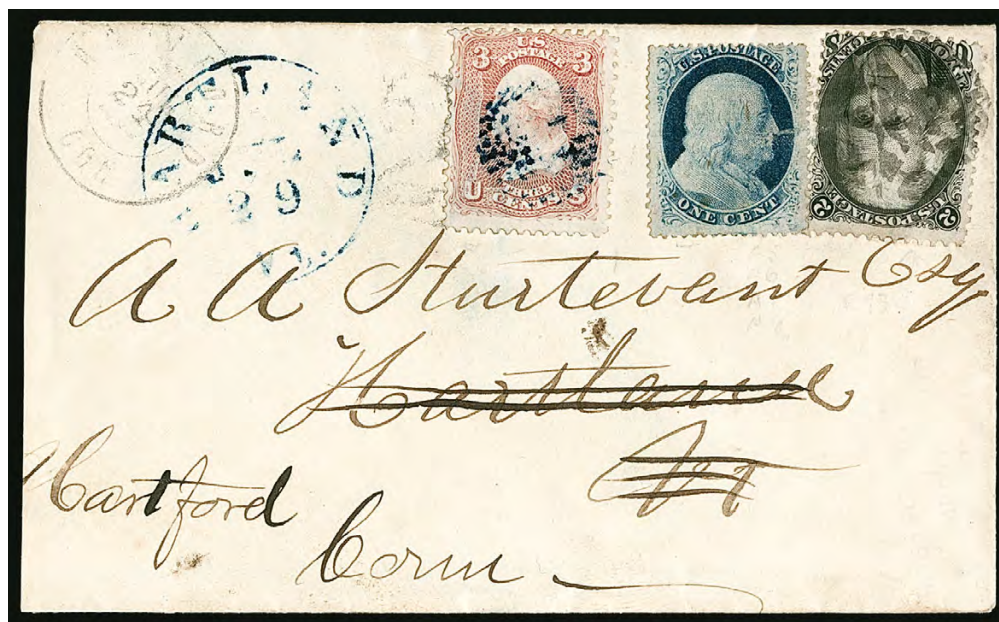 3 U.S. 3
POSTAGE
U THREE S
CENTS
U.S. POSTAGE
ONE CENT
2 U.S. POSTAGE 2
29
A A Sturtevant Esq
Hartland
Vt
Hartford
Conn